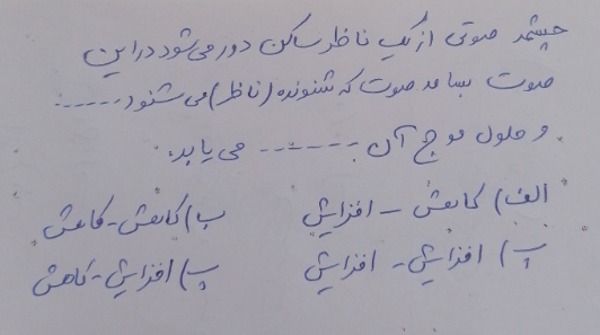 چشمه صوتی از یک ناظر ساکن دور می شود در این
صوت بسامد صوت که شنونده (ناظر) می شنود ......
و طول موج آن ------ می یابد.
الف) کاهش - افزایش ب) کاهش - کاهش
پ) افزایش - افزایش پ) افزایش - کاهش